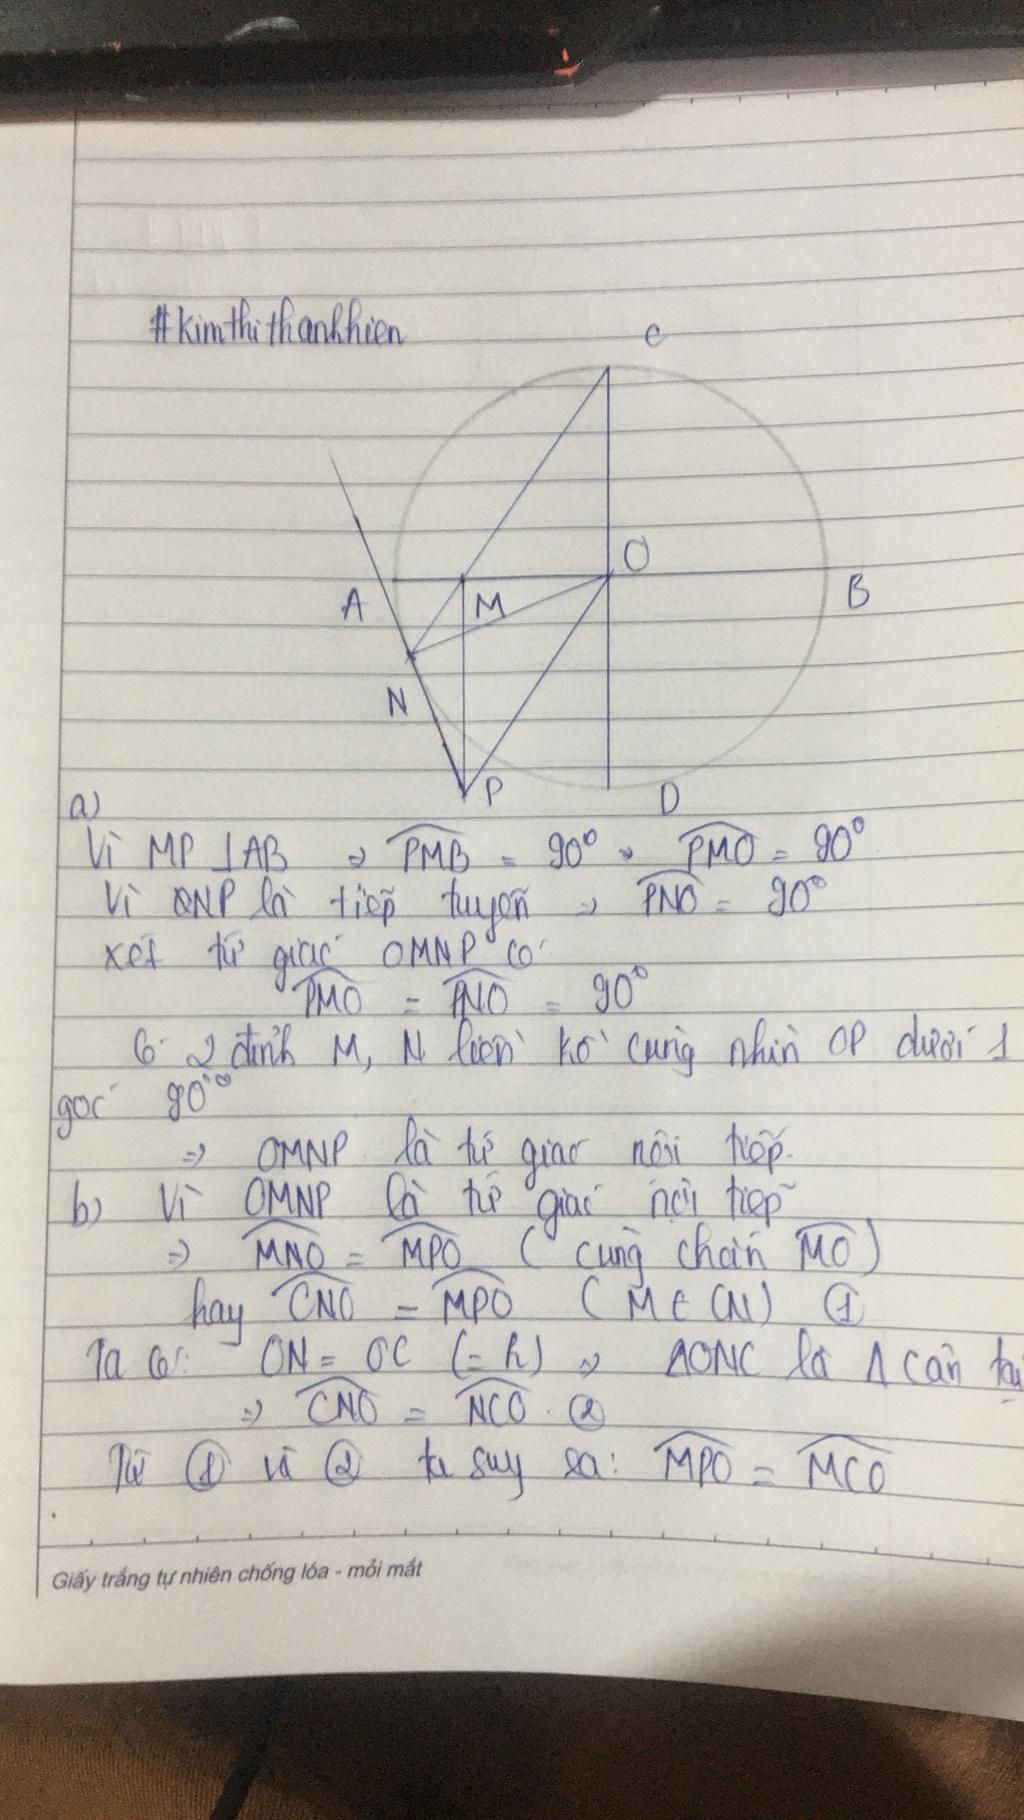 #kimthithanhhien
C
O
A
M
B
N
P
D
a)
Vì MP ⊥ AB ⇒ PMB = 90° ⇒ PMO = 90°
Vì NP là tiếp tuyến ⇒ PNO = 90°
xét tứ giác OMNP có:
PMO = PNO = 90°
Có 2 đỉnh M, N liên kề cùng nhìn OP dưới 1
góc 90°
⇒ OMNP là tứ giác nội tiếp.
b) Vì OMNP là tứ giác nội tiếp
⇒ MNO = MPO (cùng chắn MO)
hay CNO = MPO (M ∈ CN) ①
Ta có: ON = OC (= R) ⇒ ΔONC là Δ cân tại
⇒ CNO = NCO. ②
Từ ① và ② ta suy ra: MPO = MCO
Giấy trắng tự nhiên chống lóa - mỏi mắt